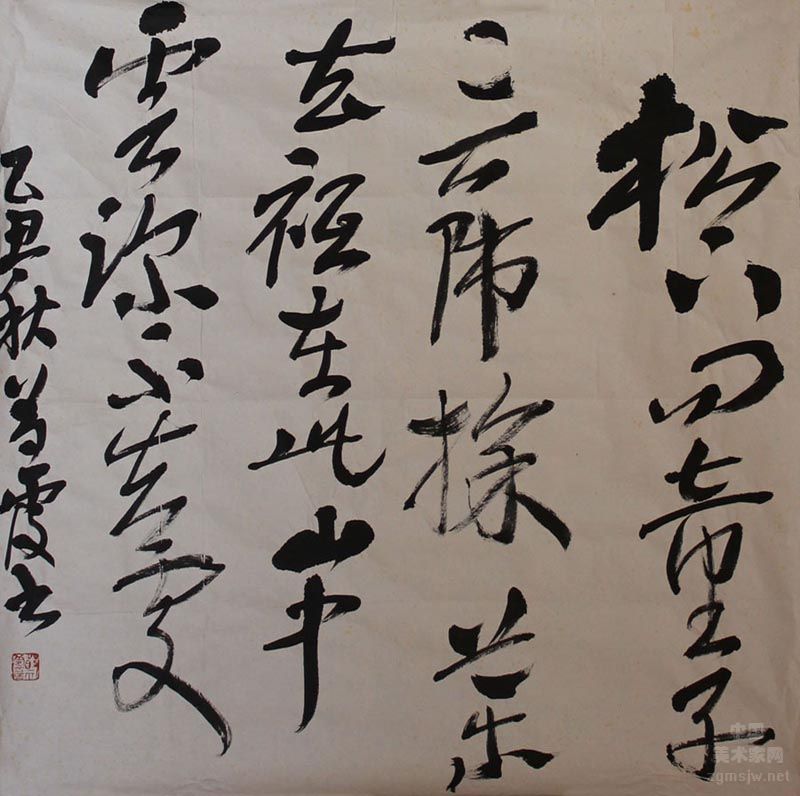 松下问童子
言师採药
去祇在此山中
雲深不知处
乙丑秋霞书
中国
美术家网
zgmsjw.net